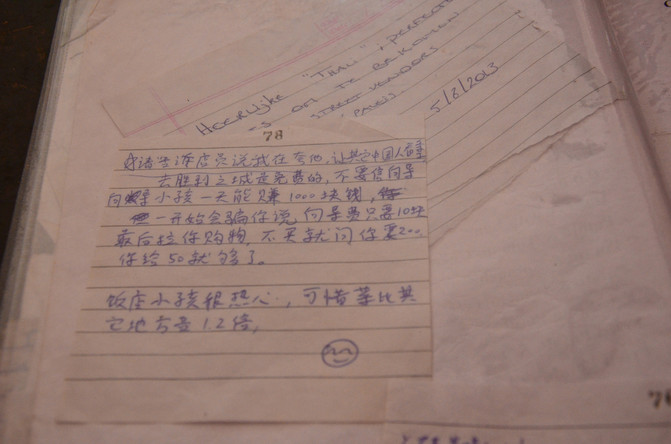 HEERLIJKE "THALI", PERFECTE
OM TE BEKOMEN
STREET VENDORS
5/8/2013
78
告诉店员说我在夸他,让其它中国人看
去胜利之城是免费的,不要信向导
小孩一天能赚1000块钱,
一开始会骗你说,向导费只要10块
最后拉你购物,不买就问你要200.
你给50就够了。
饭店小孩很热心,可惜菜比其
它地方贵1.2倍,